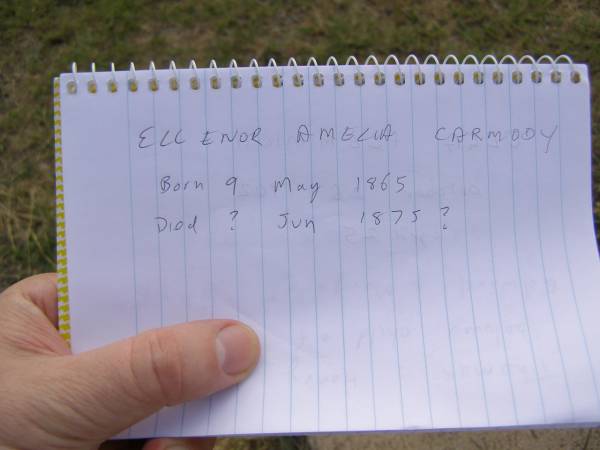 ELLENOR AMELIA CARMODY
Born 9 May 1865
Died ? Jun 1875 ?